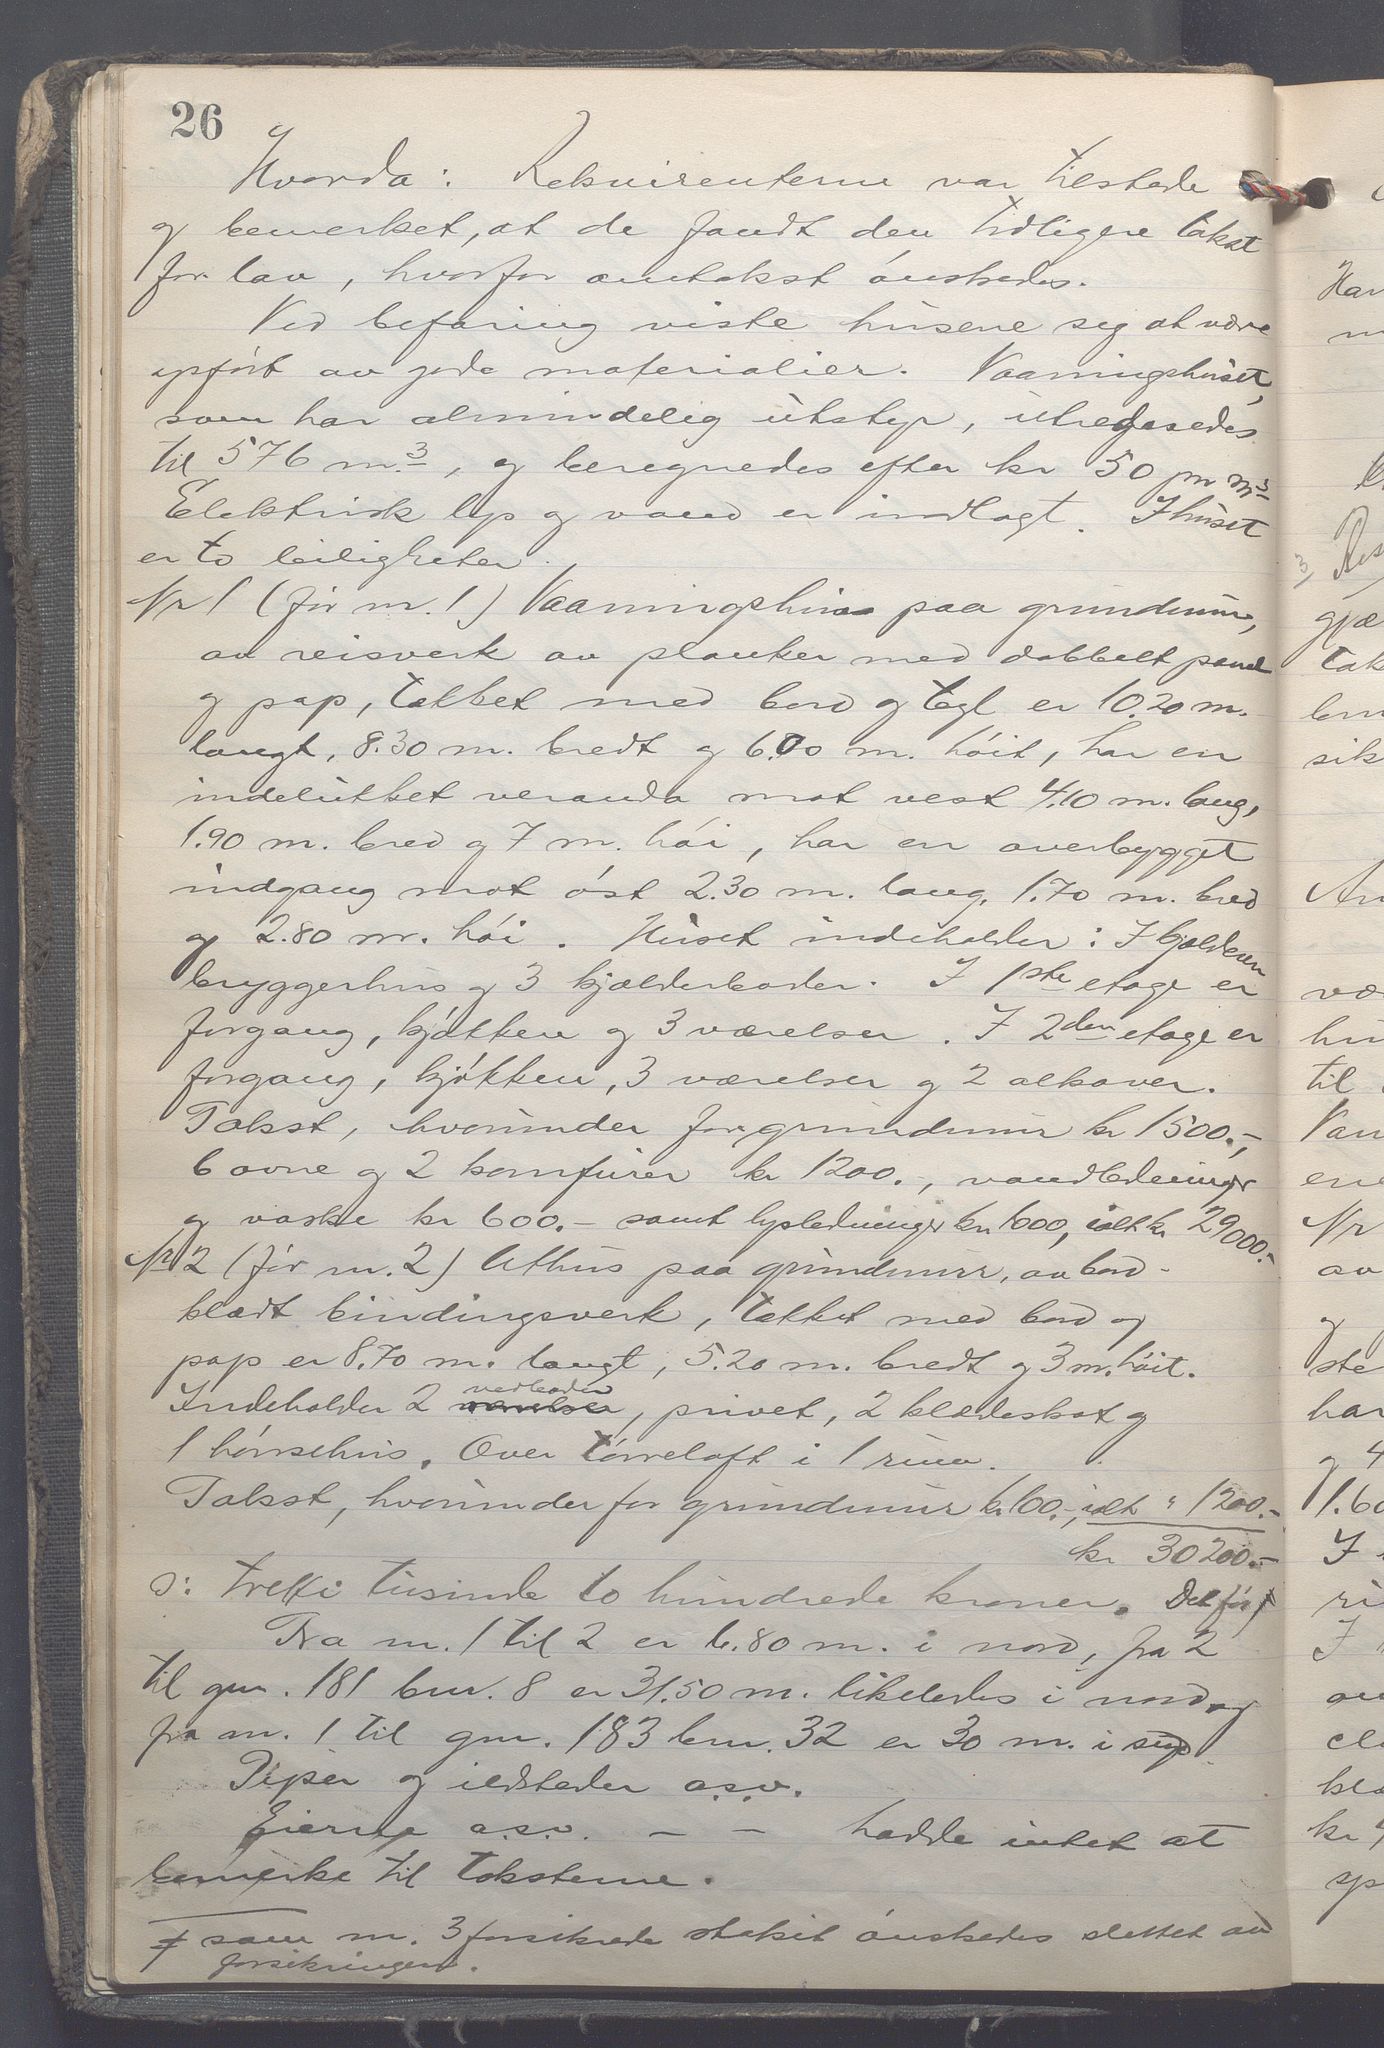 26
Hvorda: Rekvirenterne var tilstede
og bemerket, at de fandt den tidligere takst
for lav, hvorfor omtakst ønskedes.
Ved befaring viste husene sig at være
opført av gode materialier. Vaaningshuset,
som har almindelig utstyr, utregnedes
til 576 m.3, og beregnedes efter kr 50 pr m3
Elektrisk lys og vand er indlagt. I huset
er to leiligheter.
Nr 1 (før nr. 1) Vaaningshus paa grundmur,
av reisverk av planker med dobbelt panel
og pap, tækket med bord og tegl er 10.20 m.
langt, 8.30 m. bredt og 6.00 m. høit, har en
indelukket veranda mot vest 4.10 m. lang,
1.90 m. bred og 7 m. høi, har en overbygget
indgang mot øst 2.30 m. lang, 1.70 m. bred
og 2.80 m. høi. Huset indeholder: I kjælderen
bryggerhus og 3 kjælderboder. I 1ste etage er
forgang, kjøkken og 3 værelser. I 2den etage er
forgang, kjøkken, 3 værelser og 2 alkover.
Takst, hvorunder for grundmur kr 1500.-,
6 ovne og 2 komfurer kr 1200.-, vandledninger
og vaske kr 600.- samt lysledninger kr 1000, ialt kr 29000.-
Nr 2 (før nr. 2) Uthus paa grundmur, av bord-
klædt bindingsverk, tækket med bord og
pap er 8.70 m. langt, 5.20 m. bredt og 3 m. høit.
vedboder
Indeholder 2 værelser, privet, 2 klædeskot og
1 hønsehus. Over tørreloft i 1 rum.
Takst, hvorunder for grundmur kr 100.-, ialt " 1200.-
kr 30200.-
ɔ: tretti tusinde to hundrede kroner. Det før ≠
Fra nr. 1 til 2 er 6.80 m. i nord, fra 2
til gnr. 181 bnr. 8 er 31.50 m. likeledes i nord og
fra nr. 1 til gnr. 183 bnr. 32 er 30 m. i syd.
Piper og ildsteder o.s.v.
Eierne o.s.v. – – hadde intet at
bemerke til taksterne.
≠ som nr. 3 forsikrede stakit ønskedes slettet av
forsikringen.